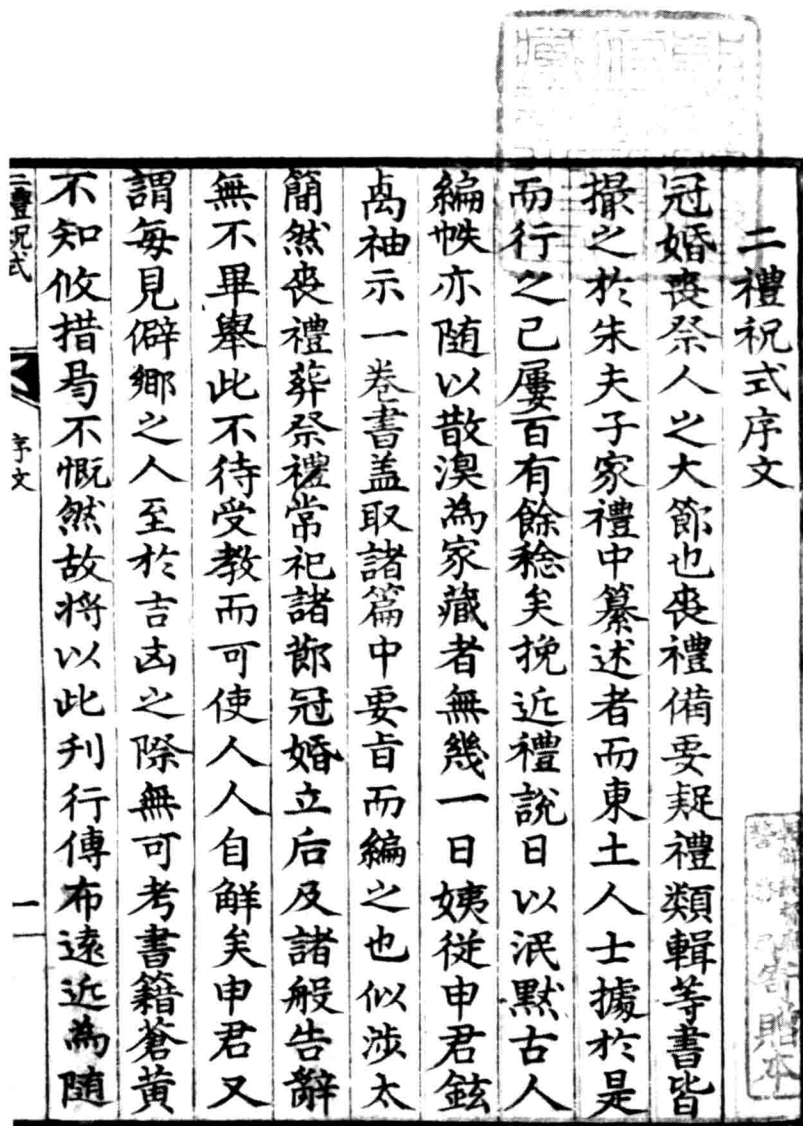 二禮祝式序文
冠婚喪祭人之大節也喪禮備要疑禮類輯等書皆
撮之於朱夫子家禮中纂述者而東土人士據於是
而行之已屢百有餘稔矣挽近禮說日以泯默古人
編帙亦随以散渙為家藏者無幾一日姨從申君鉉
卨袖示一卷書盖取諸篇中要旨而編之也似涉太
簡然喪禮葬祭禮常祀諸節冠婚立后及諸般告辭
無不畢舉此不待受教而可使人人自解矣申君又
謂每見僻鄉之人至於吉凶之際無可考書籍蒼黃
不知攸措曷不慨然故将以此刋行傳布遠近為随
二禮祝式
序文
一